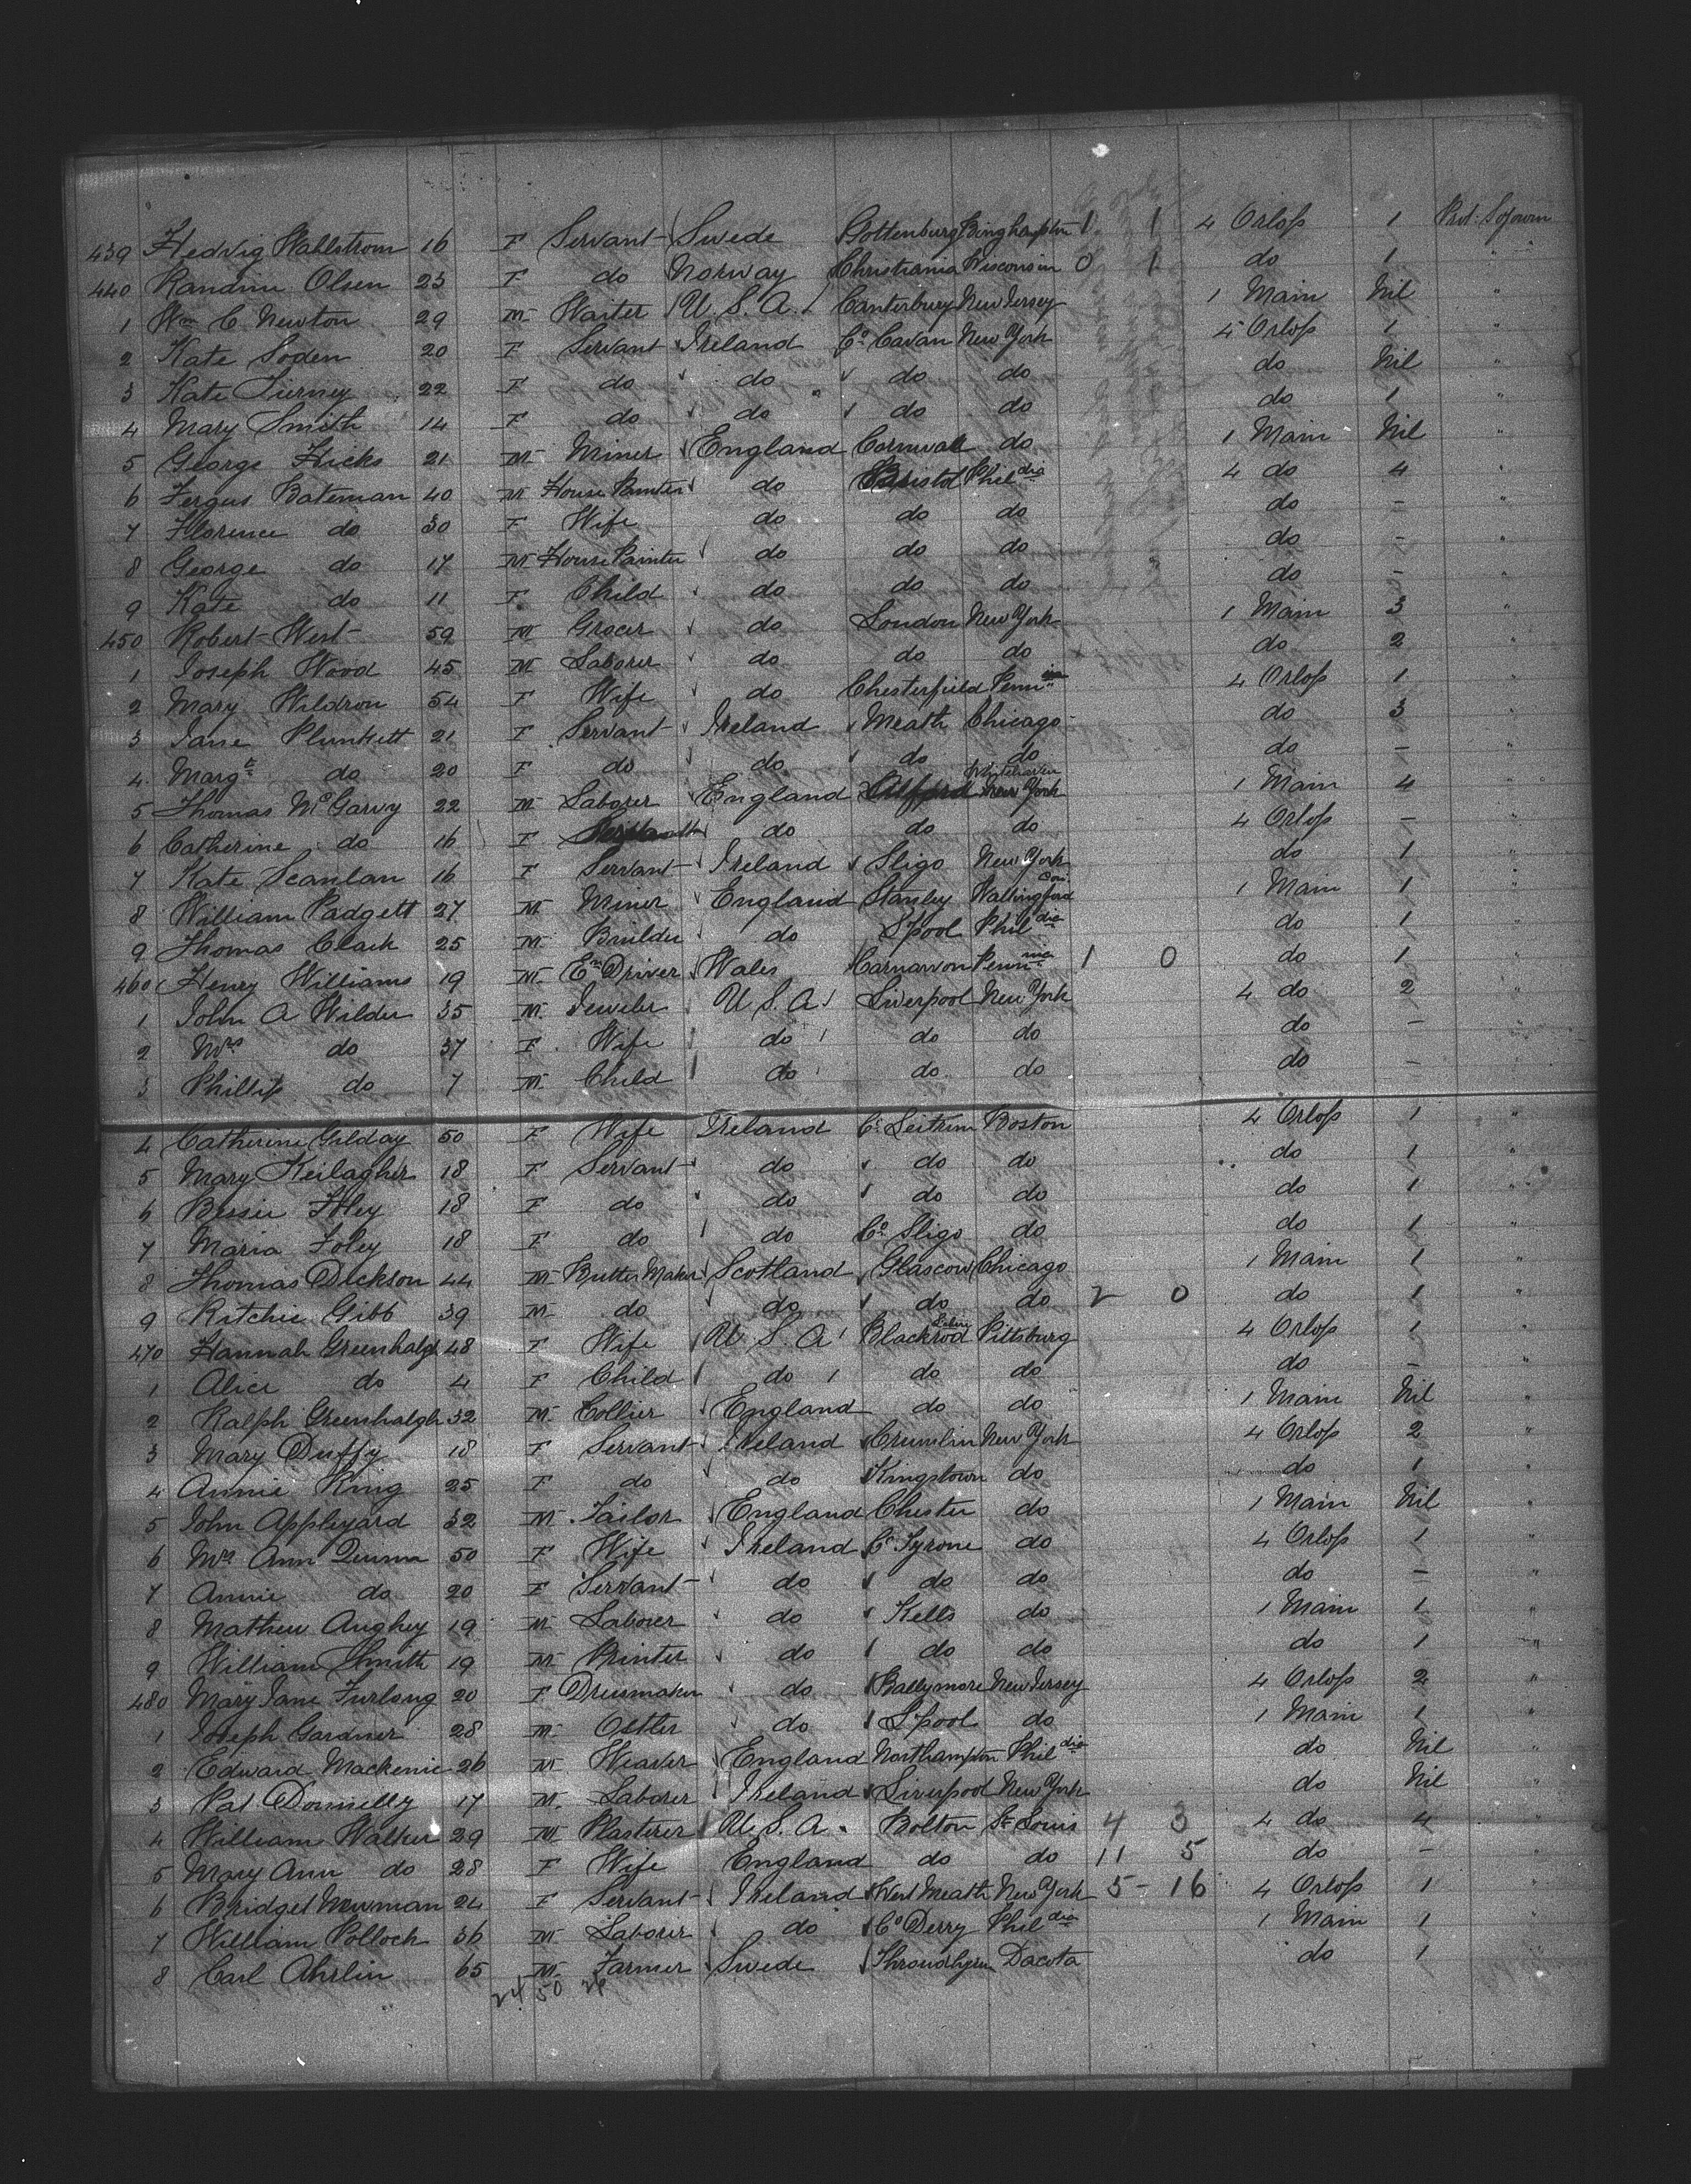 439 Hedvig Wahlstrom 16 F Servant Swede Gottenburg Binghampton 1 1 4 Orlop 1 Prot: Sojourn
440 Randine Olsen 23 F do Norway Christiania Wisconsin 0 1 do 1 "
1 Wm C. Newton 29 M Waiter U.S.A. Canterbury New Jersey 1 Main Nil "
2 Kate Soden 20 F Servant Ireland Co. Cavan New York 4 Orlop 1 "
3 Kate Tierney 22 F do do do do do Nil "
4 Mary Smith 14 F do do do do do 1 "
5 George Hicks 21 M Miner England Cornwall do 1 Main Nil "
6 Fergus Bateman 40 M House Painter do Bristol Phildia 4 do 4 "
7 Florence do 30 F Wife do do do do - "
8 George do 17 M House Painter do do do do - "
9 Kate do 11 F Child do do do do - "
450 Robert West 59 M Grocer do London New York 1 Main 3 "
1 Joseph Wood 45 M Laborer do do do do 2 "
2 Mary Wildron 54 F Wife do Chesterfield Penn 4 Orlop 1 "
3 Jane Plunkett 21 F Servant Ireland Meath Chicago do 3 "
4 Margt do 20 F do do do do do - "
5 Thomas McGarvy 22 M Laborer England Whitehaven New York 1 Main 4 "
6 Catherine do 16 F do do do 4 Orlop - "
7 Kate Scanlan 16 F Servant Ireland Sligo New York do 1 "
8 William Padgett 27 M Miner England Stanley Wallingford Con. 1 Main 1 "
9 Thomas Clark 25 M Builder do L'pool Phildia do 1 "
460 Henry Williams 19 M En Driver Wales Carnarvon Pennnia 1 0 do 1 "
1 John A Wilder 35 M Jeweler U.S.A. Liverpool New York 4 do 2 "
2 Mrs do 37 F Wife do do do do - "
3 Phillip do 7 M Child do do do do -
4 Catherine Gilday 50 F Wife Ireland Co. Leitrim Boston 4 Orlop 1 "
5 Mary Keilagher 18 F Servant do do do do 1 "
6 Bessie Foley 18 F do do do do do 1 "
7 Maria Foley 18 F do do Co. Sligo do do 1 "
8 Thomas Dickson 44 M Butter Maker Scotland Glascow Chicago 1 Main 1 "
9 Ritchie Gibb 39 M do do do do 2 0 do 1 "
470 Hannah Greenhalgh 48 F Wife U.S.A. Blackrod Pittsburg 4 Orlop 1 "
1 Alice do 4 F Child do do do do - "
2 Ralph Greenhalgh 32 M Collier England do do 1 Main Nil "
3 Mary Duffy 18 F Servant Ireland Crumlin New York 4 Orlop 2 "
4 Annie King 25 F do do Kingstown do do 1 "
5 John Appleyard 32 M Tailor England Chester do 1 Main Nil "
6 Mrs Ann Quinn 50 F Wife Ireland Co. Tyrone do 4 Orlop 1 "
7 Annie do 20 F Servant do do do do - "
8 Mathew Aughey 19 M Laborer do Kells do 1 Main 1 "
9 William Smith 19 M Printer do do do do 1 "
480 Mary Jane Furlong 20 F Dressmaker do Ballymore New Jersey 4 Orlop 2 "
1 Joseph Gardner 28 M Ostler do L'pool do 1 Main 1 "
2 Edward Mackenie 26 M Weaver England Northampton Phildia do Nil "
3 Pat Donnelly 17 M Laborer Ireland Liverpool New York do Nil "
4 William Walker 29 M Plasterer U.S.A. Bolton St Louis 4 3 4 do 4 "
5 Mary Ann do 28 F Wife England do do 11 5 do - "
6 Bridget Newman 24 F Servant Ireland West Meath New York 5-16 4 Orlop 1 "
7 William Pollock 36 M Laborer do Co Derry Phildia 1 Main 1 "
8 Carl Ahrlin 65 M Farmer Swede Dacota do 1 "
24 50 26